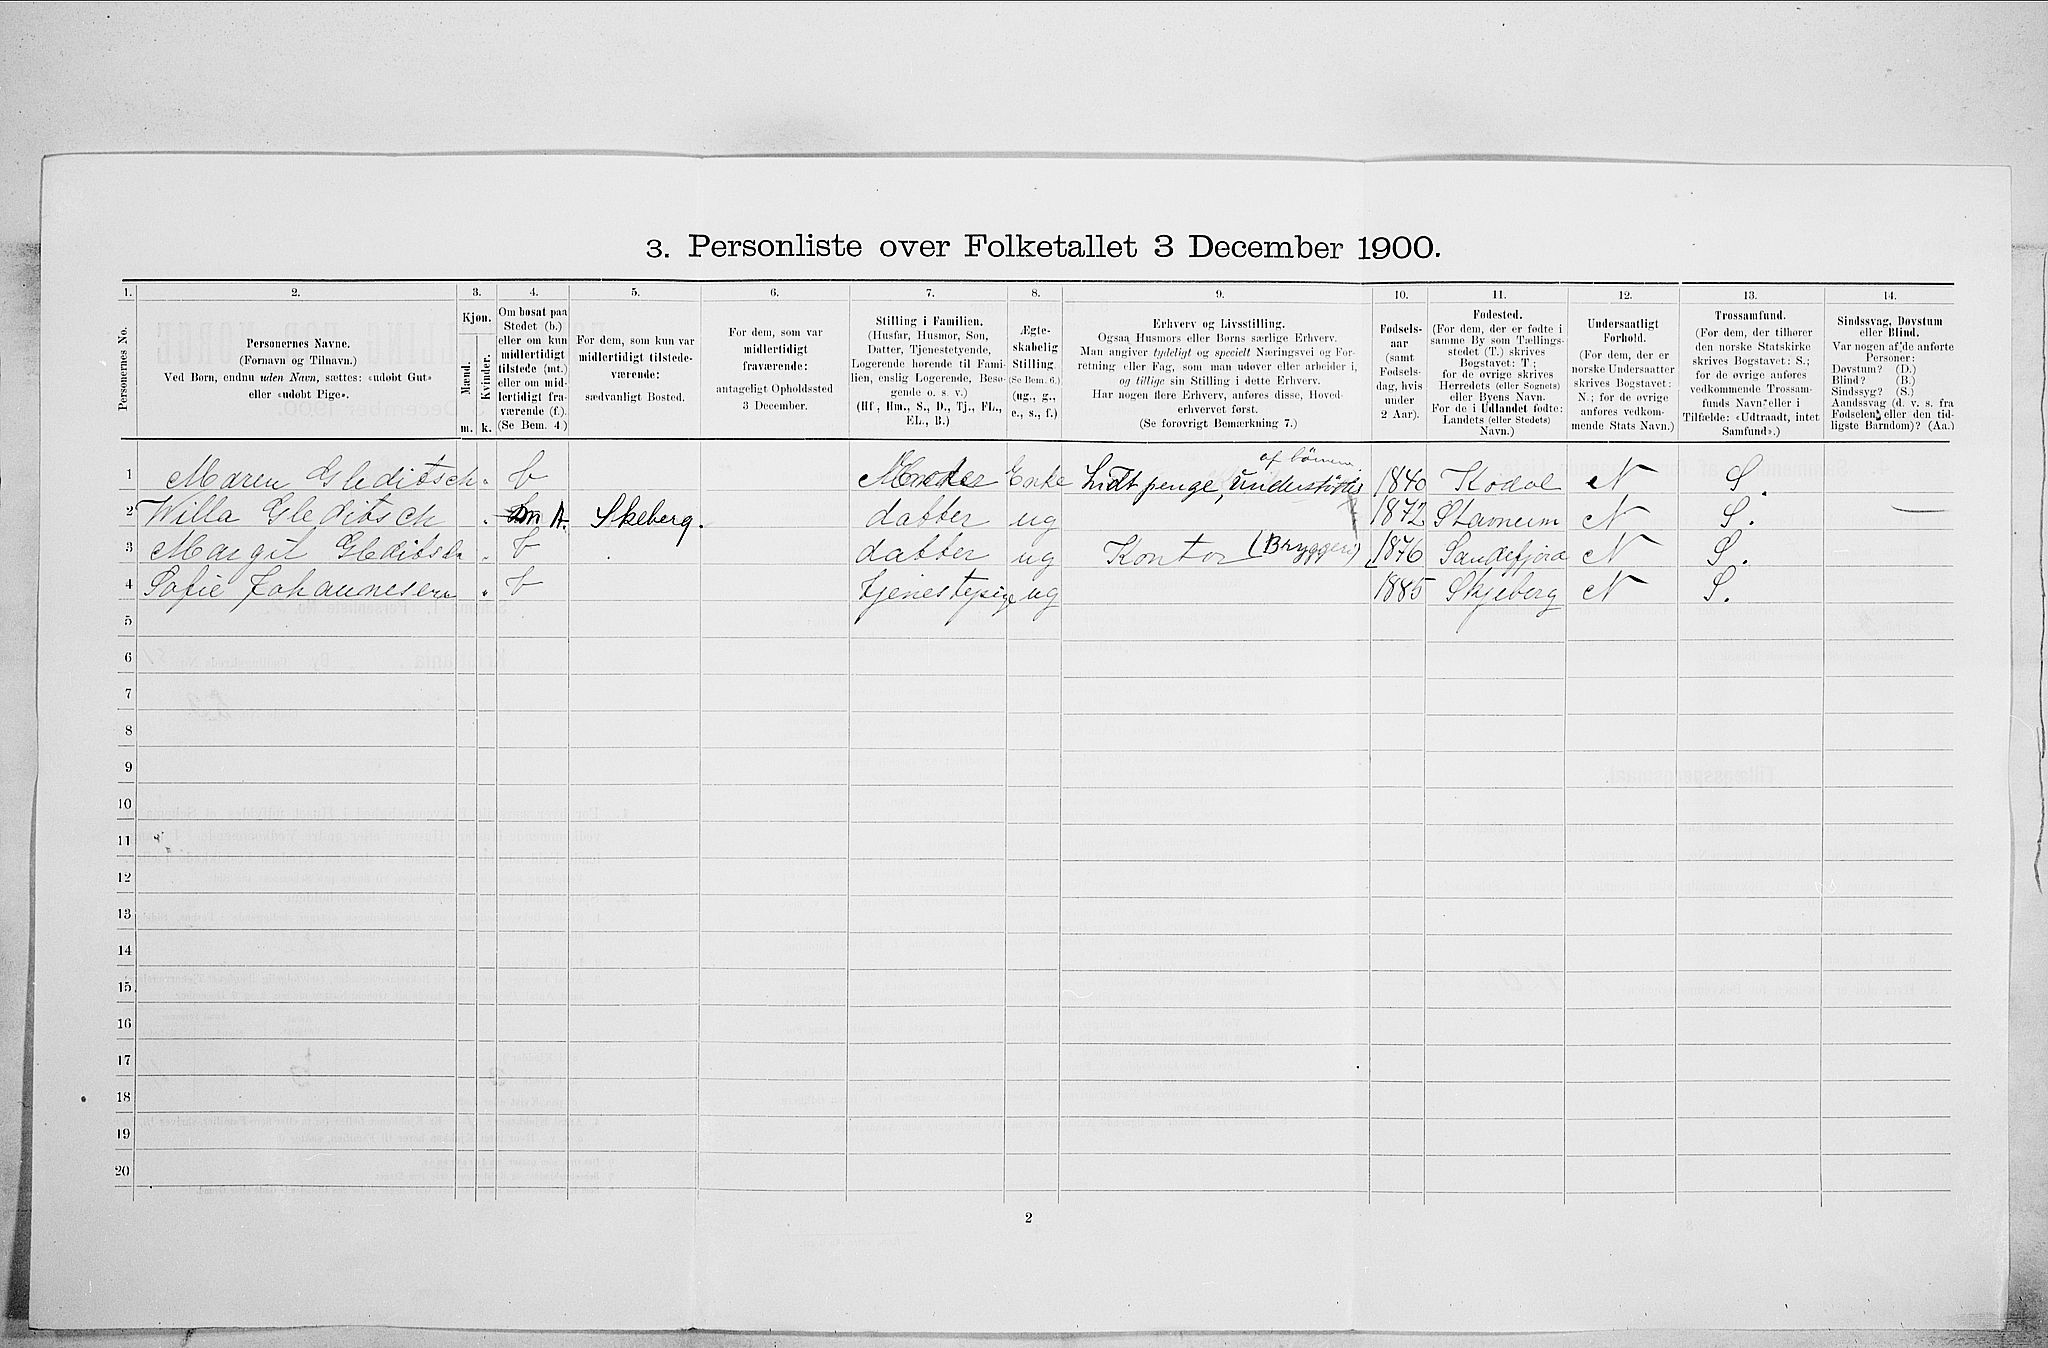 3. Personliste over Folketallet 3 December 1900.
1. 2. 3. 4. 5. 6. 7. 8. 9. 10. 11. 12. 13. 14.
Personernes No.
Personernes Navne.
(Fornavn og Tilnavn.)
Ved Børn, endnu uden Navn, sættes: «udøbt Gut»
eller «udøbt Pige».
Kjøn.
Mænd.
Kvinder.
m. k.
Om bosat paa
Stedet (b.)
eller om kun
midlertidigt
tilstede (mt.)
eller om mid-
lertidigt fra-
værende (f.).
(Se Bem. 4.)
For dem, som kun var
midlertidigt tilstede-
værende:
sædvanligt Bosted.
For dem, som var
midlertidigt
fraværende:
antageligt Opholdssted
3 December.
Stilling i Familien.
(Husfar, Husmor, Søn,
Datter, Tjenestetyende,
Logerende hørende til Fami-
lien, enslig Logerende, Besø-
gende o. s. v.)
(Hf., Hm., S., D., Tj., FL.,
EL., B.)
Ægte-
skabelig
Stilling.
(Se Bem. 6.)
(ug., g.,
e., s., f.)
Erhverv og Livsstilling.
Ogsaa Husmors eller Børns særlige Erhverv.
Man angiver tydeligt og specielt Næringsvei og For-
retning eller Fag, som man udøver eller arbeider i,
og tillige sin Stilling i dette Erhverv.
Har nogen flere Erhverv, anføres disse, Hoved-
erhvervet først.
(Se forøvrigt Bemærkning 7.)
Fødsels-
aar
(samt
Fødsels-
dag, hvis
under
2 Aar).
Fødested.
(For dem, der er fødte i
samme By som Tællings-
stedet (T.) skrives
Bogstavet: T;
for de øvrige skrives
Herredets (eller Sognets)
eller Byens Navn.
For de i Udlandet fødte:
Landets (eller Stedets)
Navn.)
Undersaatligt
Forhold.
(For dem, der er
norske Undersaatter
skrives Bogstavet:
N.; for de øvrige
anføres vedkom-
mende Stats Navn.)
Trossamfund.
(For dem, der tilhører
den norske Statskirke
skrives Bogstavet: S.;
for de øvrige anføres
vedkommende Trossam-
funds Navn, eller i
Tilfælde: «Udtraadt, intet
Samfund».)
Sindssvag, Døvstum
eller Blind.
Var nogen af de anførte
Personer:
Døvstum? (D.)
Blind? (B.)
Sindssyg? (S.)
Aandssvag (d. v. s. fra
Fødselen eller den tid-
ligste Barndom)? (Aa.)
1 Maren Gleditsch b Moder Enke Lidt penge, understøttes af børnene 1840 Kodal N S.
2 Willa Gleditsch Skeberg. datter ug 1872 N S.
3 Margit Gleditsch b datter ug Kontor (Bryggeri) 1876 Sandefjord N S.
4 Sofie Johannesen b tjenestepige ug 1885 Skjeberg N S.
5
6
7
8
9
10
11
12
13
14
15
16
17
18
19
20
2